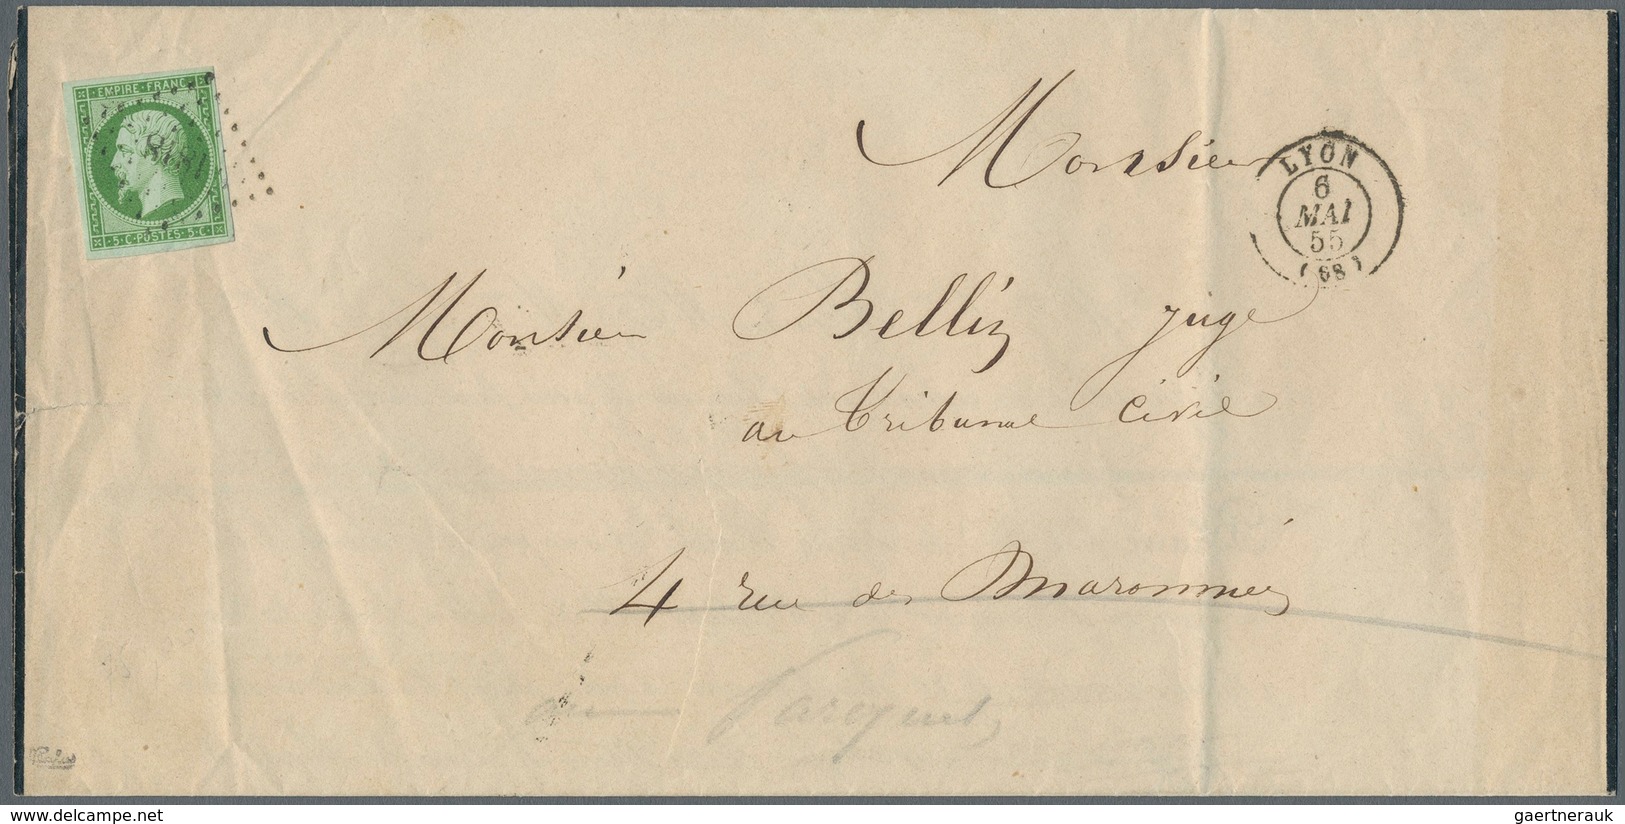 EMPIRE·FRANC
1818
5·C·POSTES·5·C·
Monsieur
LYON
6
MAI
55
(68)
Monsieur Belliz juge
au Tribunal Civil
4 rue des Maronniés
au Parquet
delcampe.net
gaertnerauk